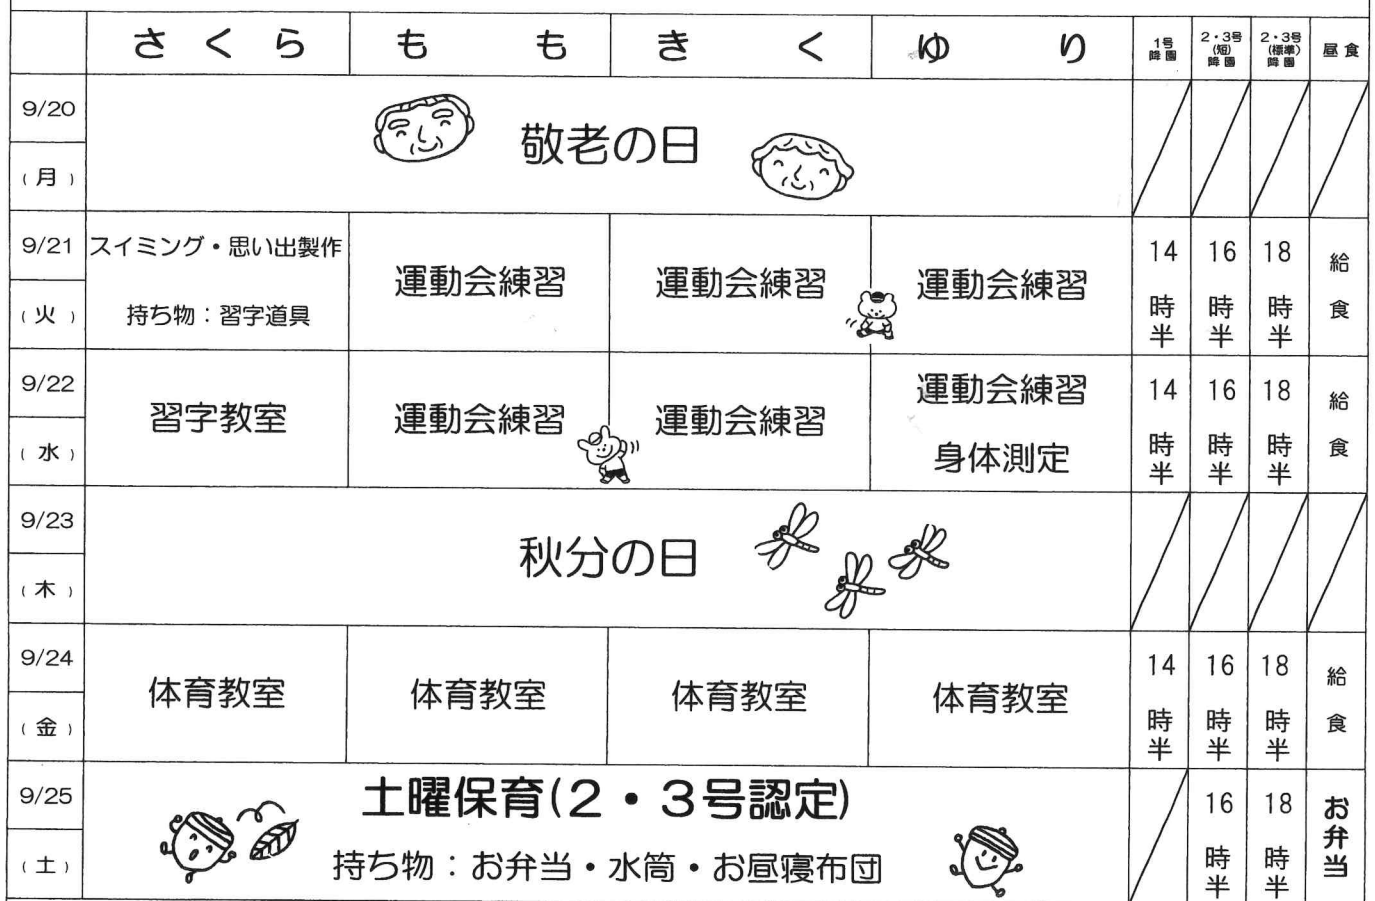 さくら もも きく ゆり 1号降園 2・3号(短)降園 2・3号(標準)降園 昼食
9/20
(月)
敬老の日
9/21
(火)
スイミング・思い出製作
持ち物：習字道具
運動会練習
運動会練習
運動会練習
14時半
16時半
18時半
給食
9/22
(水)
習字教室
運動会練習
運動会練習
運動会練習
身体測定
14時半
16時半
18時半
給食
9/23
(木)
秋分の日
9/24
(金)
体育教室
体育教室
体育教室
体育教室
14時半
16時半
18時半
給食
9/25
(土)
土曜保育(2・3号認定)
持ち物：お弁当・水筒・お昼寝布団
16時半
18時半
お弁当